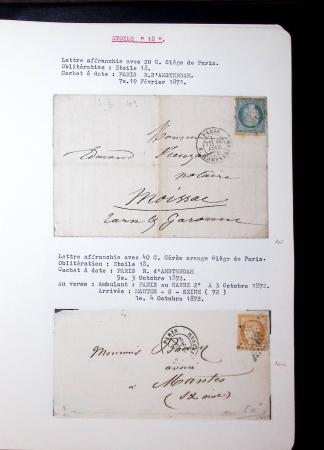 ETOILE " 18 ".
Lettre affranchie avec 20 C. Siège de Paris.
Oblitération : Etoile 18.
Cachet à date : PARIS R.D'AMSTERDAM.
7e.19 Février 1871.
Monsieur
Edmond
notaire
Moissac
Tarn & Garonne
Lettre affranchie avec 40 C. Cérès orange Siège de Paris.
Oblitération : Etoile 18.
Cachet à date : PARIS R. d'AMSTERDAM
5e. 3 Octobre 1872.
Au verso : Ambulant : PARIS au HAVRE 2° A 3 Octobre 1872.
Arrivée : MANTES - S - SEINE ( 72 )
1e. 4 Octobre 1872.
PARIS
Monsieur
avoué
à Mantes